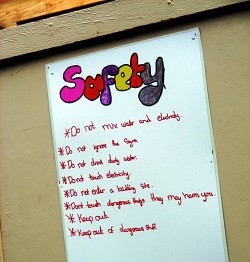 Safety
*Do not mix water and electricity.
*Do not ignore the signs.
*Do not drink dirty water.
*Do not touch electricity.
*Do not enter a building site.
*Don't touch dangerous things they may harm you.
*Keep out
*Keep out of dangerous stuff